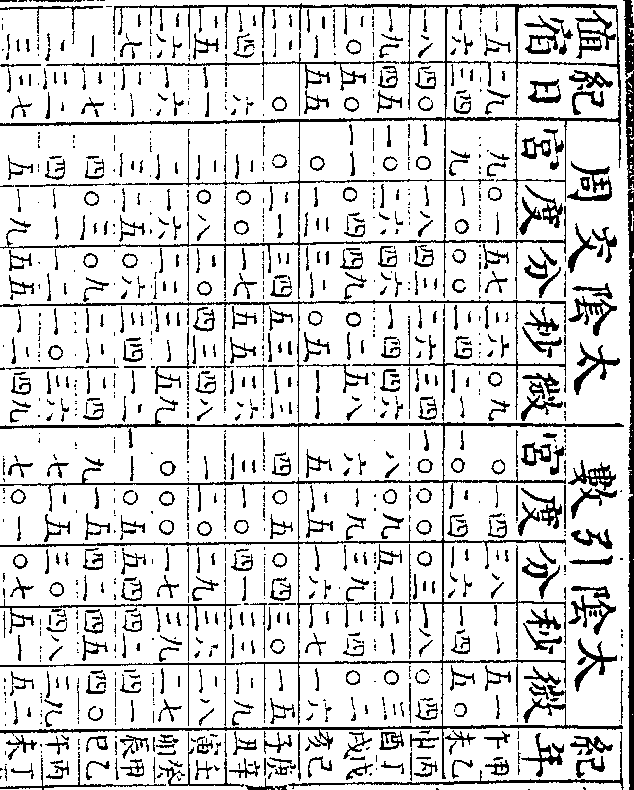 值宿 紀日 太陰交周 宮 度 分 秒 微 太陰引數 宮 度 分 秒 微 紀年
一五 二九 九 〇一 五七 三六 〇九 〇 一四 三八 一一 五一 甲午
一六 三四 九 一〇 〇〇 二四 二一 一〇 二四 二六 一四 五〇 乙未
一八 四〇 一〇 一八 四三 二六 三四 一〇 〇〇 〇三 一八 〇四 丙申
一九 四五 一〇 二六 四六 一四 四六 八 〇九 五一 二一 〇三 丁酉
二〇 五〇 一一 〇四 四九 〇二 五八 六 一九 三九 二四 〇二 戊戌
二一 五五 〇 一三 三二 〇五 一一 五 二五 一六 二七 一六 己亥
二二 〇 〇 二一 三四 五三 二三 四 〇五 〇四 三〇 一五 庚子
二四 六 二 〇〇 一七 五五 三六 三 一〇 四一 三三 二九 辛丑
二五 一一 二 〇八 二〇 四三 四八 一 二〇 二九 三六 二八 壬寅
二六 一六 二 一六 二三 三一 五九 〇 〇〇 一七 三九 二七 癸卯
二七 二一 三 二五 〇六 三四 一二 一一 〇五 五四 四二 四一 甲辰
一 二七 四 〇三 〇九 二二 二四 九 一五 四二 四五 四〇 乙巳
二 三二 四 一一 一二 一〇 三六 七 二五 三〇 四八 三九 丙午
三 三七 五 一九 五五 一二 四九 七 〇一 〇七 五一 五二 丁未